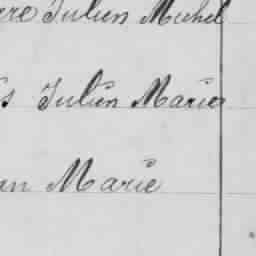 erre Julien Michel
is Julien Marie
an Marie